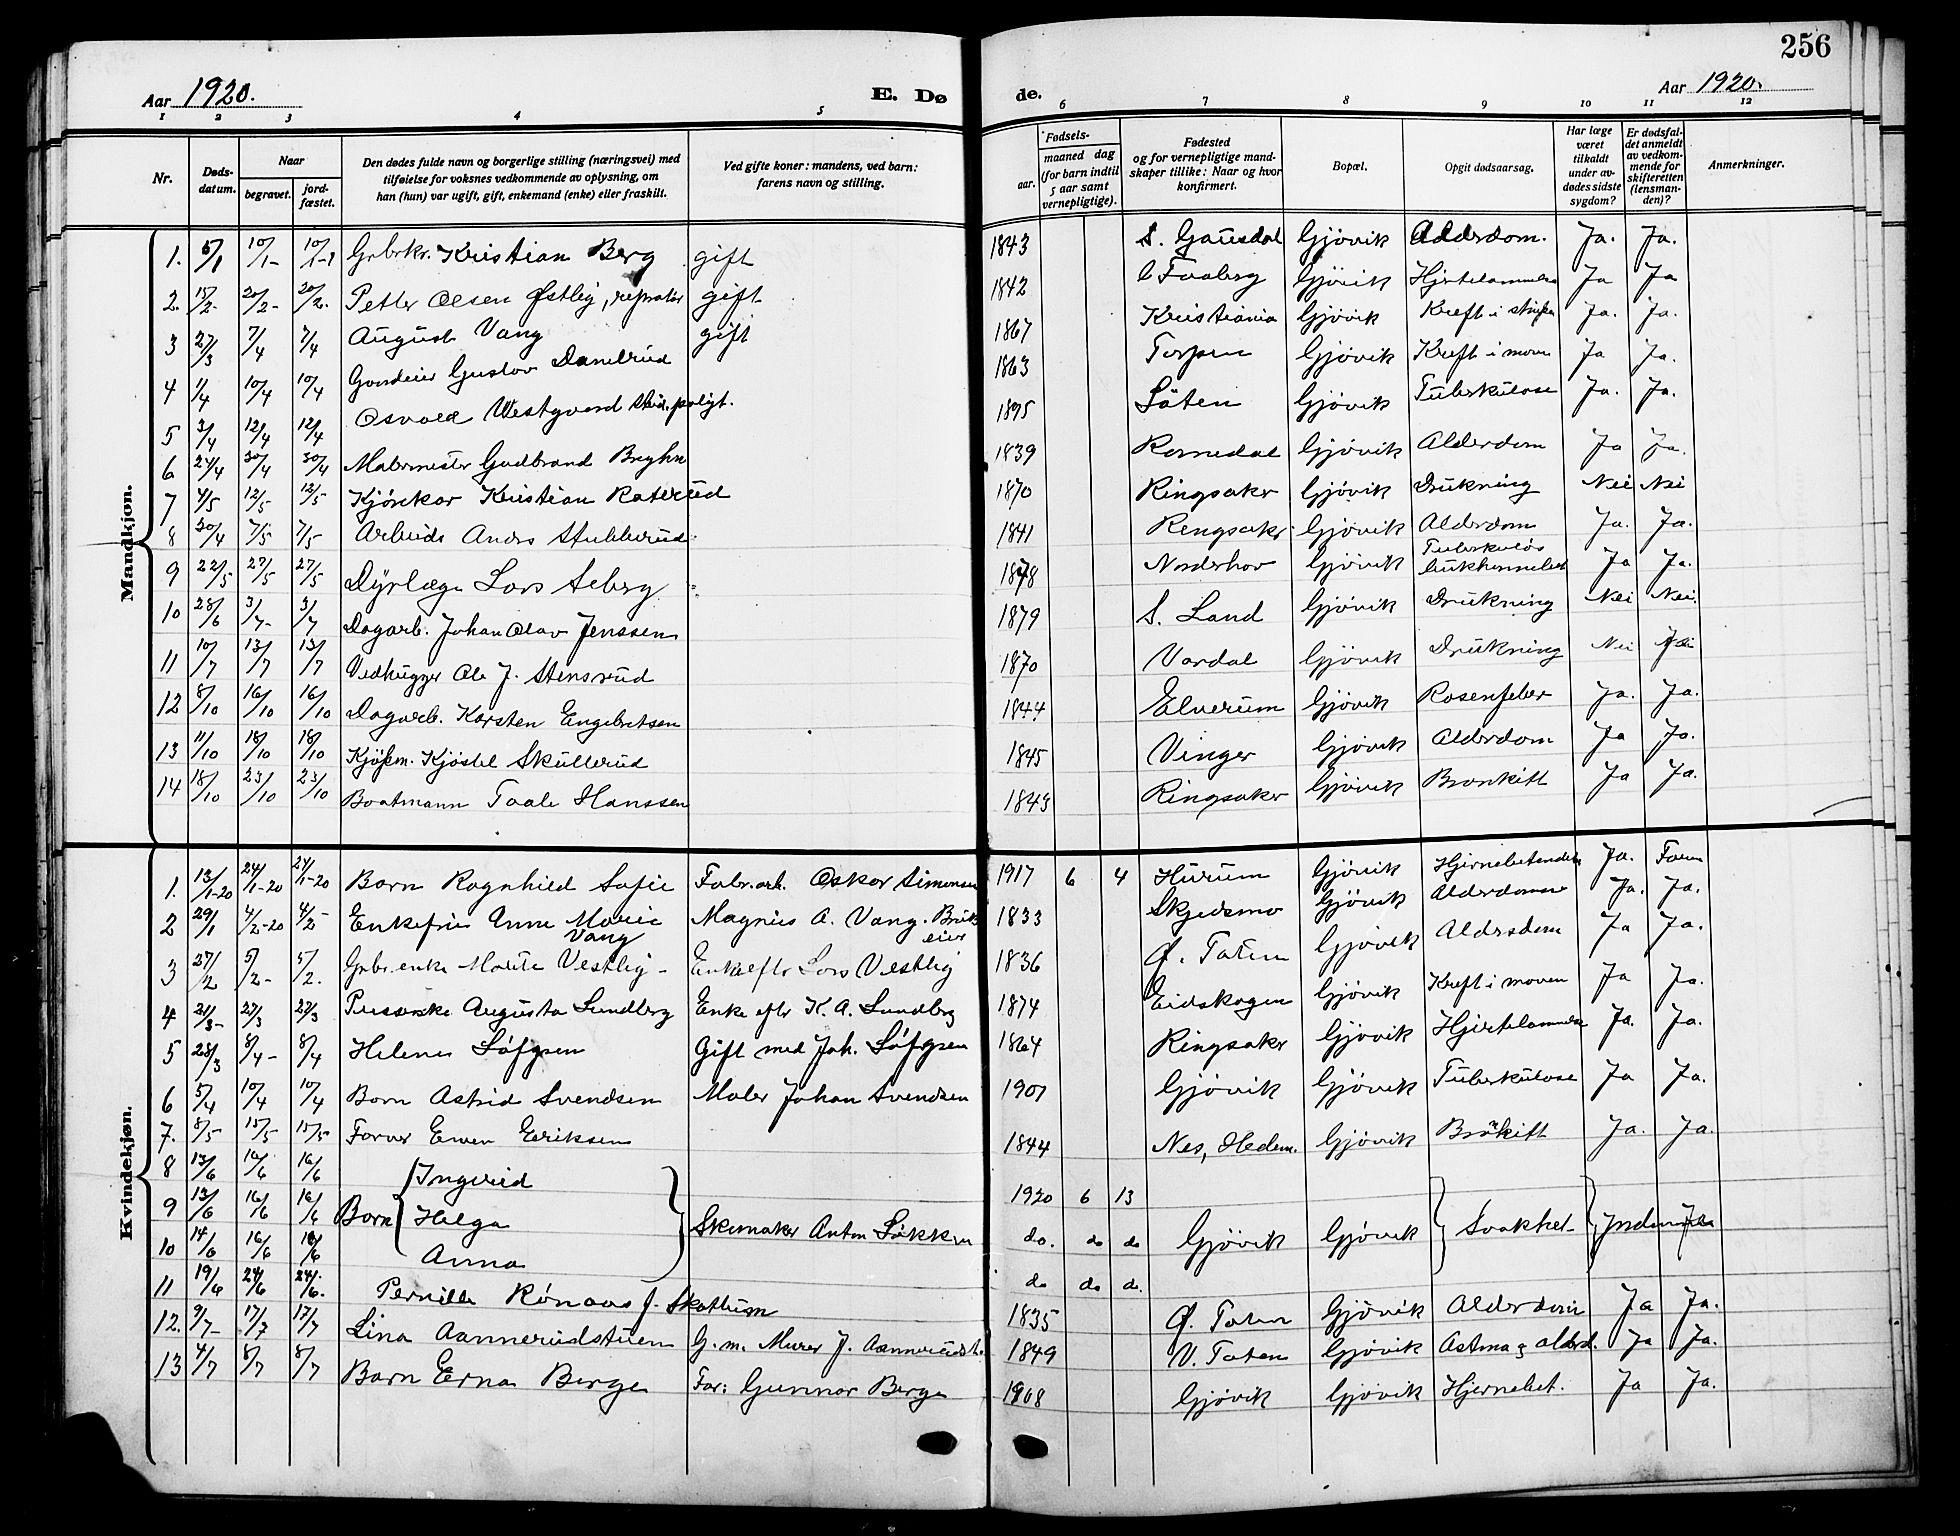 256
Aar 1920. E. Dø de. Aar 1920.
1 2 3 4 5 6 7 8 9 10 11 12
Nr. Døds-datum. Naar begravet. jord-fæstet. Den dødes fulde navn og borgerlige stilling (næringsvei) med tilføielse for voksnes vedkommende av oplysning, om han (hun) var ugift, gift, enkemand (enke) eller fraskilt. Ved gifte koner: mandens, ved barn: farens navn og stilling. Fødsels- aar. maaned dag (for barn indtil 5 aar samt vernepligtige). Fødested og for vernepligtige mand-skaper tillike: Naar og hvor konfirmert. Bopæl. Opgit dødsaarsag. Har læge været tilkaldt under av-dødes sidste sygdom? Er dødsfal-det anmeldt av vedkom-mende for skifteretten (lensman-den)? Anmerkninger.
Mandkjøn.
1. 5/1 10/1- 10/1- Grbrkr. Kristian Berg gift 1843 S. Gausdal Gjövik Alderdom. Ja. Ja.
2. 15/2- 20/2- 20/2. Petter Olsen Østlig, gift 1842 Faaberg Gjövik Hjertelammelse Ja Ja
3 27/3 7/4 7/4 August Vang gift 1867 Kristiania Gjövik Kreft i Ja. Ja.
4 1/4 10/4 10/4 Gaardeier Gustav 1863 Torpen Gjövik Kreft i maven Ja Ja.
5 3/4 12/4 12/4 Osvald Westgaard 1895 Löten Gjövik Tuberkulose Ja. Ja.
6 24/4 30/4 30/4 Malermester Gudbrand Bryhn 1839 Romedal Gjövik Alderdom Ja Ja.
7 4/5 12/5 12/5 Kjörekar Kristian Raterud 1870 Ringsaker Gjövik Drukning Nei Nei
8 30/4 7/5 7/5 Arbeids Anders Stubberud 1841 Ringsaker Gjövik Alderdom Ja. Ja.
9 22/5 27/5 27/5 Dyrlæge Lars Aaberg 1878 Norderhov Gjövik Tuberkulös Ja Ja.
10 28/6 3/7- 3/7 Dagarb. Johan Olav Jenssen 1879 S. Land Gjövik Drukning Nei Nei.
11 10/7 13/7 13/7 Vedhugger Ole J. Stensrud 1870 Vardal Gjövik Drukning Nei
12 8/10 16/10 16/10 Dagarb. Karsten Engebretsen 1844 Elverum Gjövik Rosenfeber Ja. Ja.
13 11/10 18/10 18/10 Kjöbm. Kjöstel Skullerud 1845 Vinger Gjövik Alderdom Ja Ja.
14 18/10 23/10 23/10 Baatmann Taale Hanssen 1843 Ringsaker Gjövik Bronkitt Ja Ja.
Kvindekjøn.
1. 13/1-20 24/1-20 24/1-20 Barn Ragnhild Sofie Fabr.arb. Oskar Simonsen 1917 6 4 Hurum Gjövik Hjernebetendelse Ja.
2 29/1 4/2-20 4/2- Enkefru Anne Marie Vang Magnus A. Vang. Brukseier 1833 Skjedsmo Gjövik Alderdom Ja. Ja.
3 27/2 5/2- 5/2. Gbr.enke Marte Vestlig- Enke eftr Lars Vestlig 1836 Ø. Toten Gjövik Alderdom Ja Ja.
4 21/3- 27/3 27/3 Augusta Lundberg Enke eftr K. A. Lundberg 1874 Eidskogen Gjövik Kreft i maven Ja Ja.
5 28/3 8/4- 8/4 Helene Löfgren Gift med Joh. Löfgren 1864 Ringsaker Gjövik Hjertelammelse Ja. Ja.
6 5/4 10/4 10/4 Barn Astrid Svendsen Maler Johan Svendsen 1901 Gjövik Gjövik Tuberkulose Ja Ja.
7. 8/5 15/5 15/5 Eriksen 1844 Nes, Hedem. Gjövik Ja. Ja.
8 13/6 16/6 16/6 Ingerid 1920 6 13
9 13/6 16/6 16/6 Barn Helga Skomaker Anton Lökken do. do do Gjövik Gjövik Svakhet
10 14/6 16/6 16/6 Anna do do do.
11 19/6 24/6 24/6. Pernille Rönaas f. Skattum 1835 Ø. Toten Gjövik Alderdom Ja Ja.
12. 9/7- 17/7 17/7 Lina Aannerudstuen G. m. Murer J. Aannerudst. 1849 V. Toten Gjövik Astma & alderd. Ja Ja.
13 4/7 8/7 8/7 Barn Erna Berge Far: Gunnar Berge 1908 Gjövik Gjövik Hjernebet. Ja Ja.